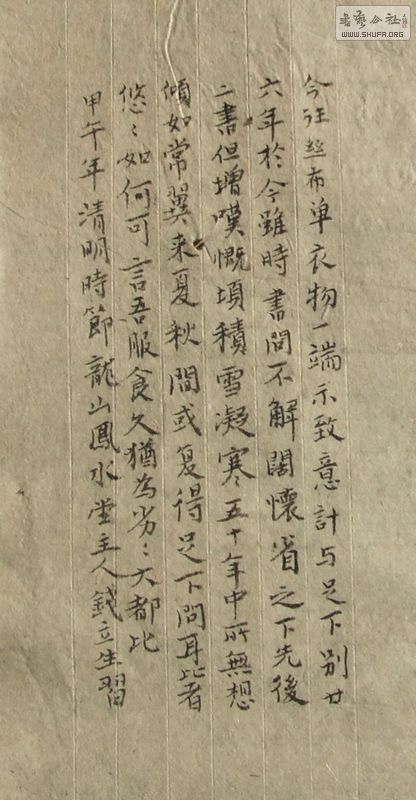 今往絲布單衣物一端示致意計与足下別廿
六年於今雖時書問不解闊懷省之下先後
二書但增嘆慨頃積雪凝寒五十年中所無想
傾如常翼来夏秋間或复得足下問耳比者
悠〻如何可言吾服食久猶為劣〻大都比
甲午年清明時節龍山鳳水堂主人錢立生習
書藝公社
WWW.SHUFA.ORG